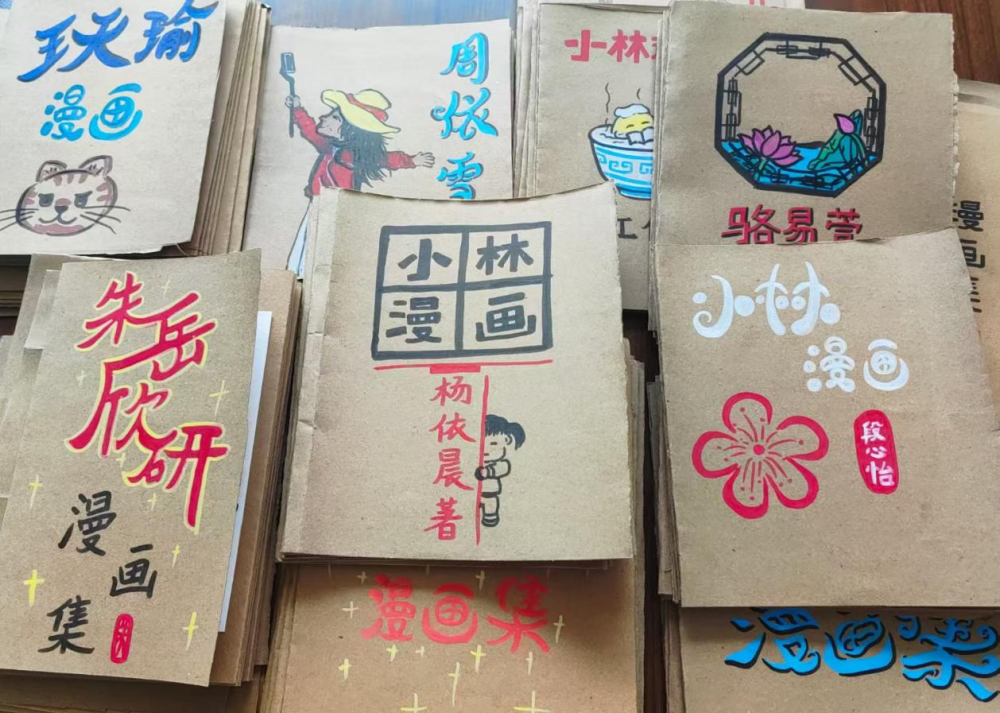 王天瑜
漫画
周依雪
小林
骆易萱
漫画集
朱岳
欣研
漫画
集
小林
漫画
杨依晨著
小林
漫画
段心怡
漫画集
漫画集